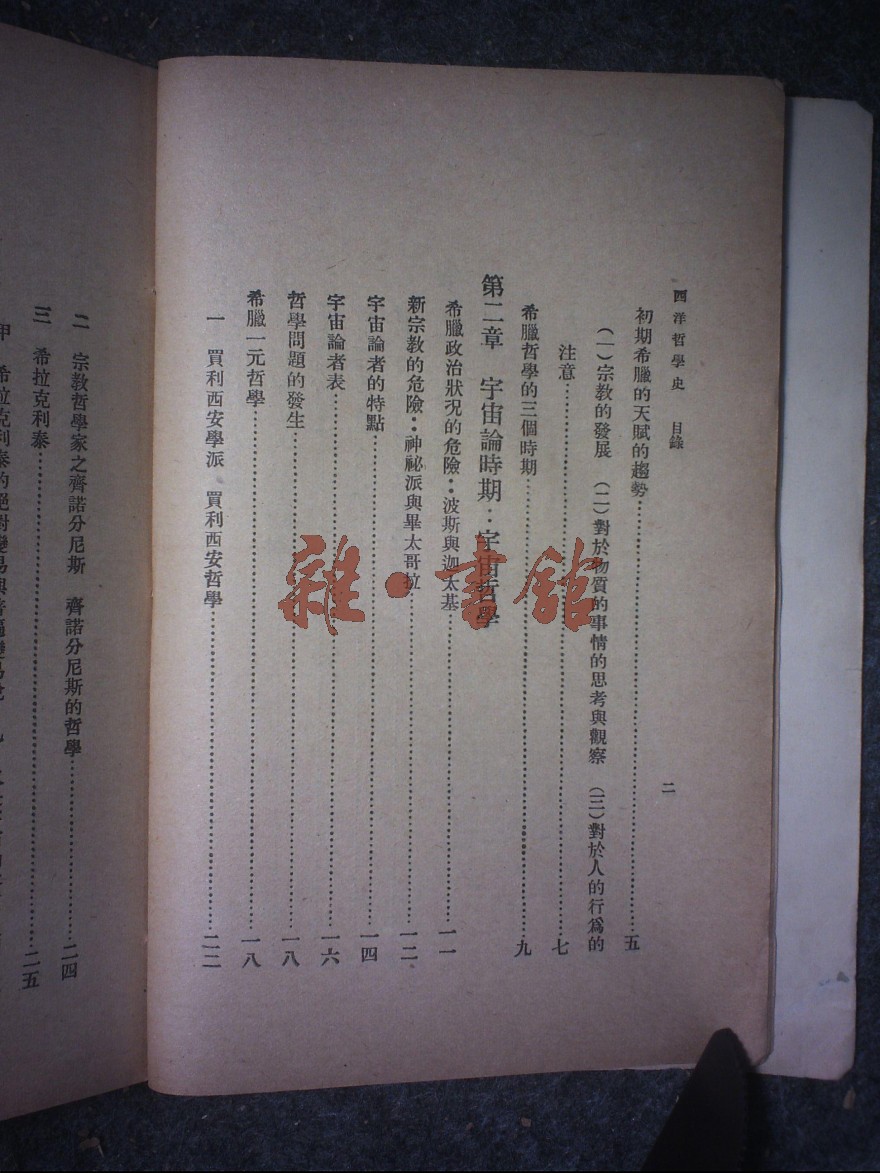 西洋哲學史　目錄
二
初期希臘的天賦的趨勢……五
（一）宗教的發展　（二）對於物質的事情的思考與觀察　（三）對於人的行爲的
注意……七
希臘哲學的三個時期……九
第二章　宇宙論時期：宇宙哲學
希臘政治狀况的危險：波斯與迦太基……一一
新宗教的危險：神祕派與畢太哥拉……一二
宇宙論者的特點……一四
宇宙論者表……一六
哲學問題的發生……一八
希臘一元哲學……一八
一　買利西安學派　買利西安哲學……二二
二　宗教哲學家之齊諾分尼斯　齊諾分尼斯的哲學……二四
三　希拉克利泰……二五
甲　希拉克利泰的絕對變易與普遍變易說
雜·書館